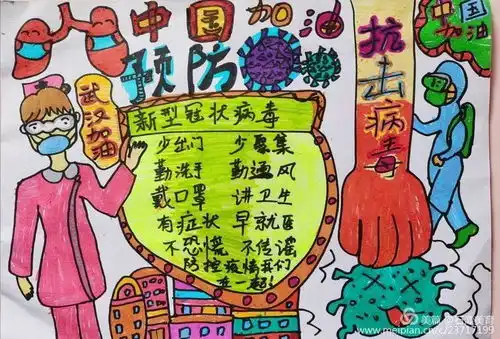 中国加油
预防
武汉加油
新型冠状病毒
少出门 少聚集
勤洗手 勤通风
戴口罩 讲卫生
有症状 早就医
不恐慌 不传谣
防控疫情我们
在一起!
抗击病毒
中国
加油
www.meipian.cn/c/23717199